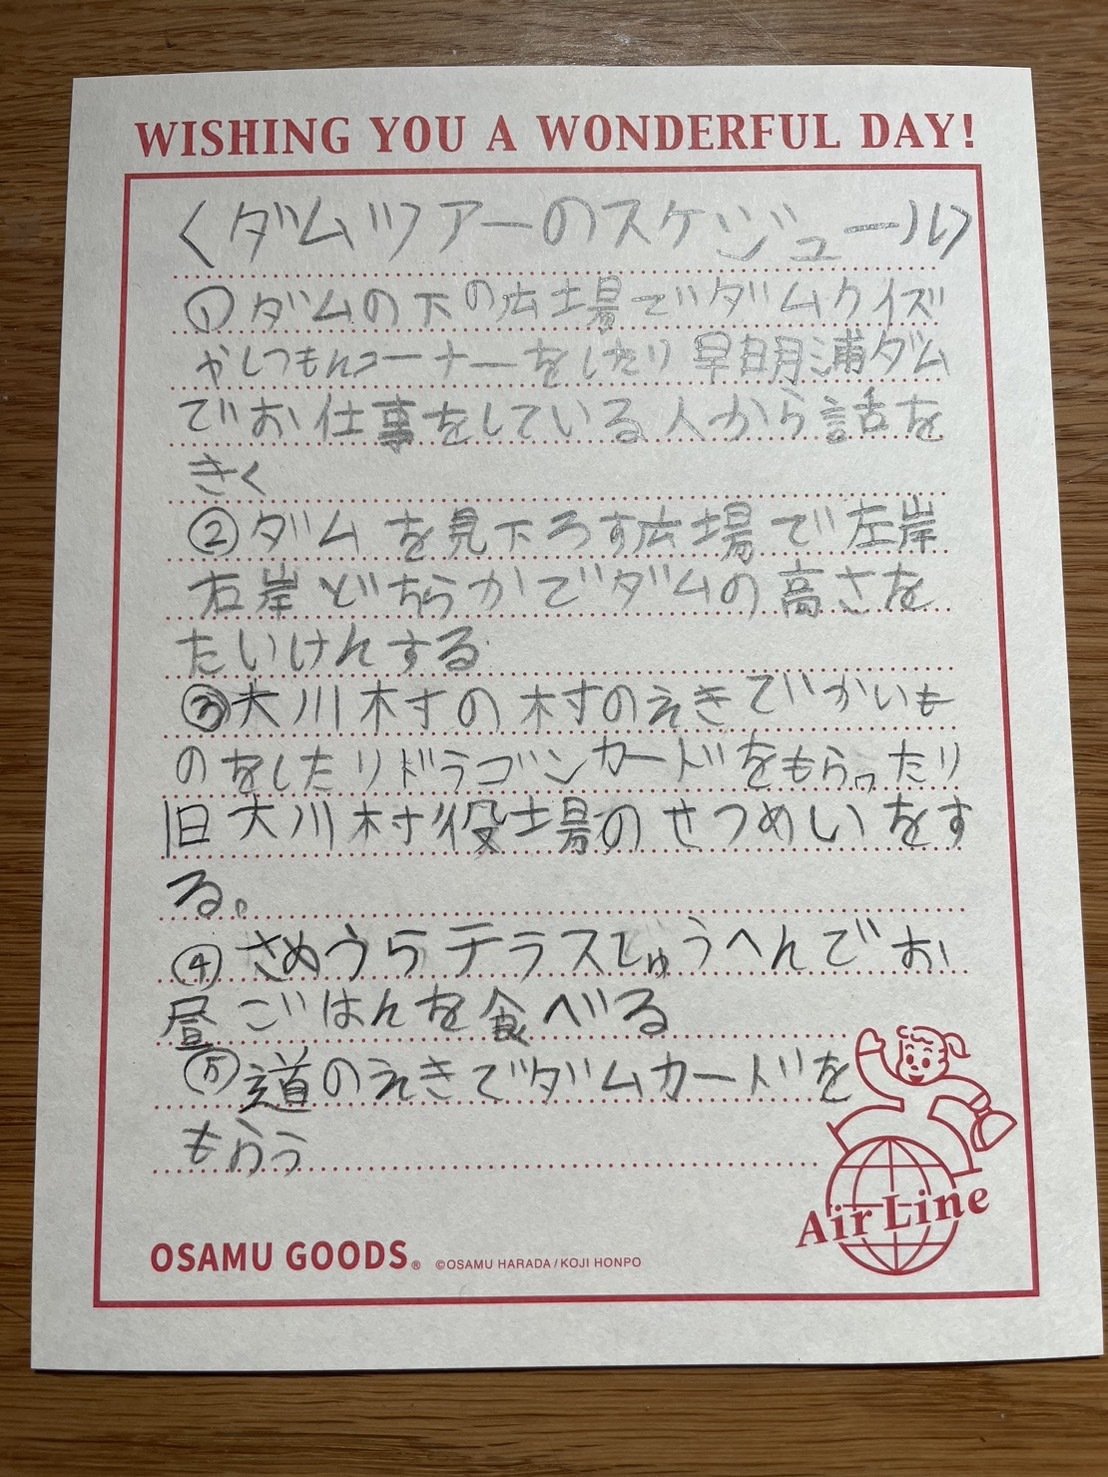 WISHING YOU A WONDERFUL DAY!
〈ダムツアーのスケジュール〉
①ダムの下の広場でダムクイズ
やしつもんコーナーをしたり早明浦ダム
でお仕事をしている人から話を
きく
②ダムを見下ろす広場で左岸
右岸どちらかでダムの高さを
たいけんする
③大川村の村のえきでかいも
のをしたりドラゴンカードをもらったり
旧大川村役場のせつめいをす
る。
④さめうらテラスしゅうへんでお
昼ごはんを食べる
⑤道のえきでダムカードを
もらう
Air Line
OSAMU GOODS® ©OSAMU HARADA / KOJI HONPO